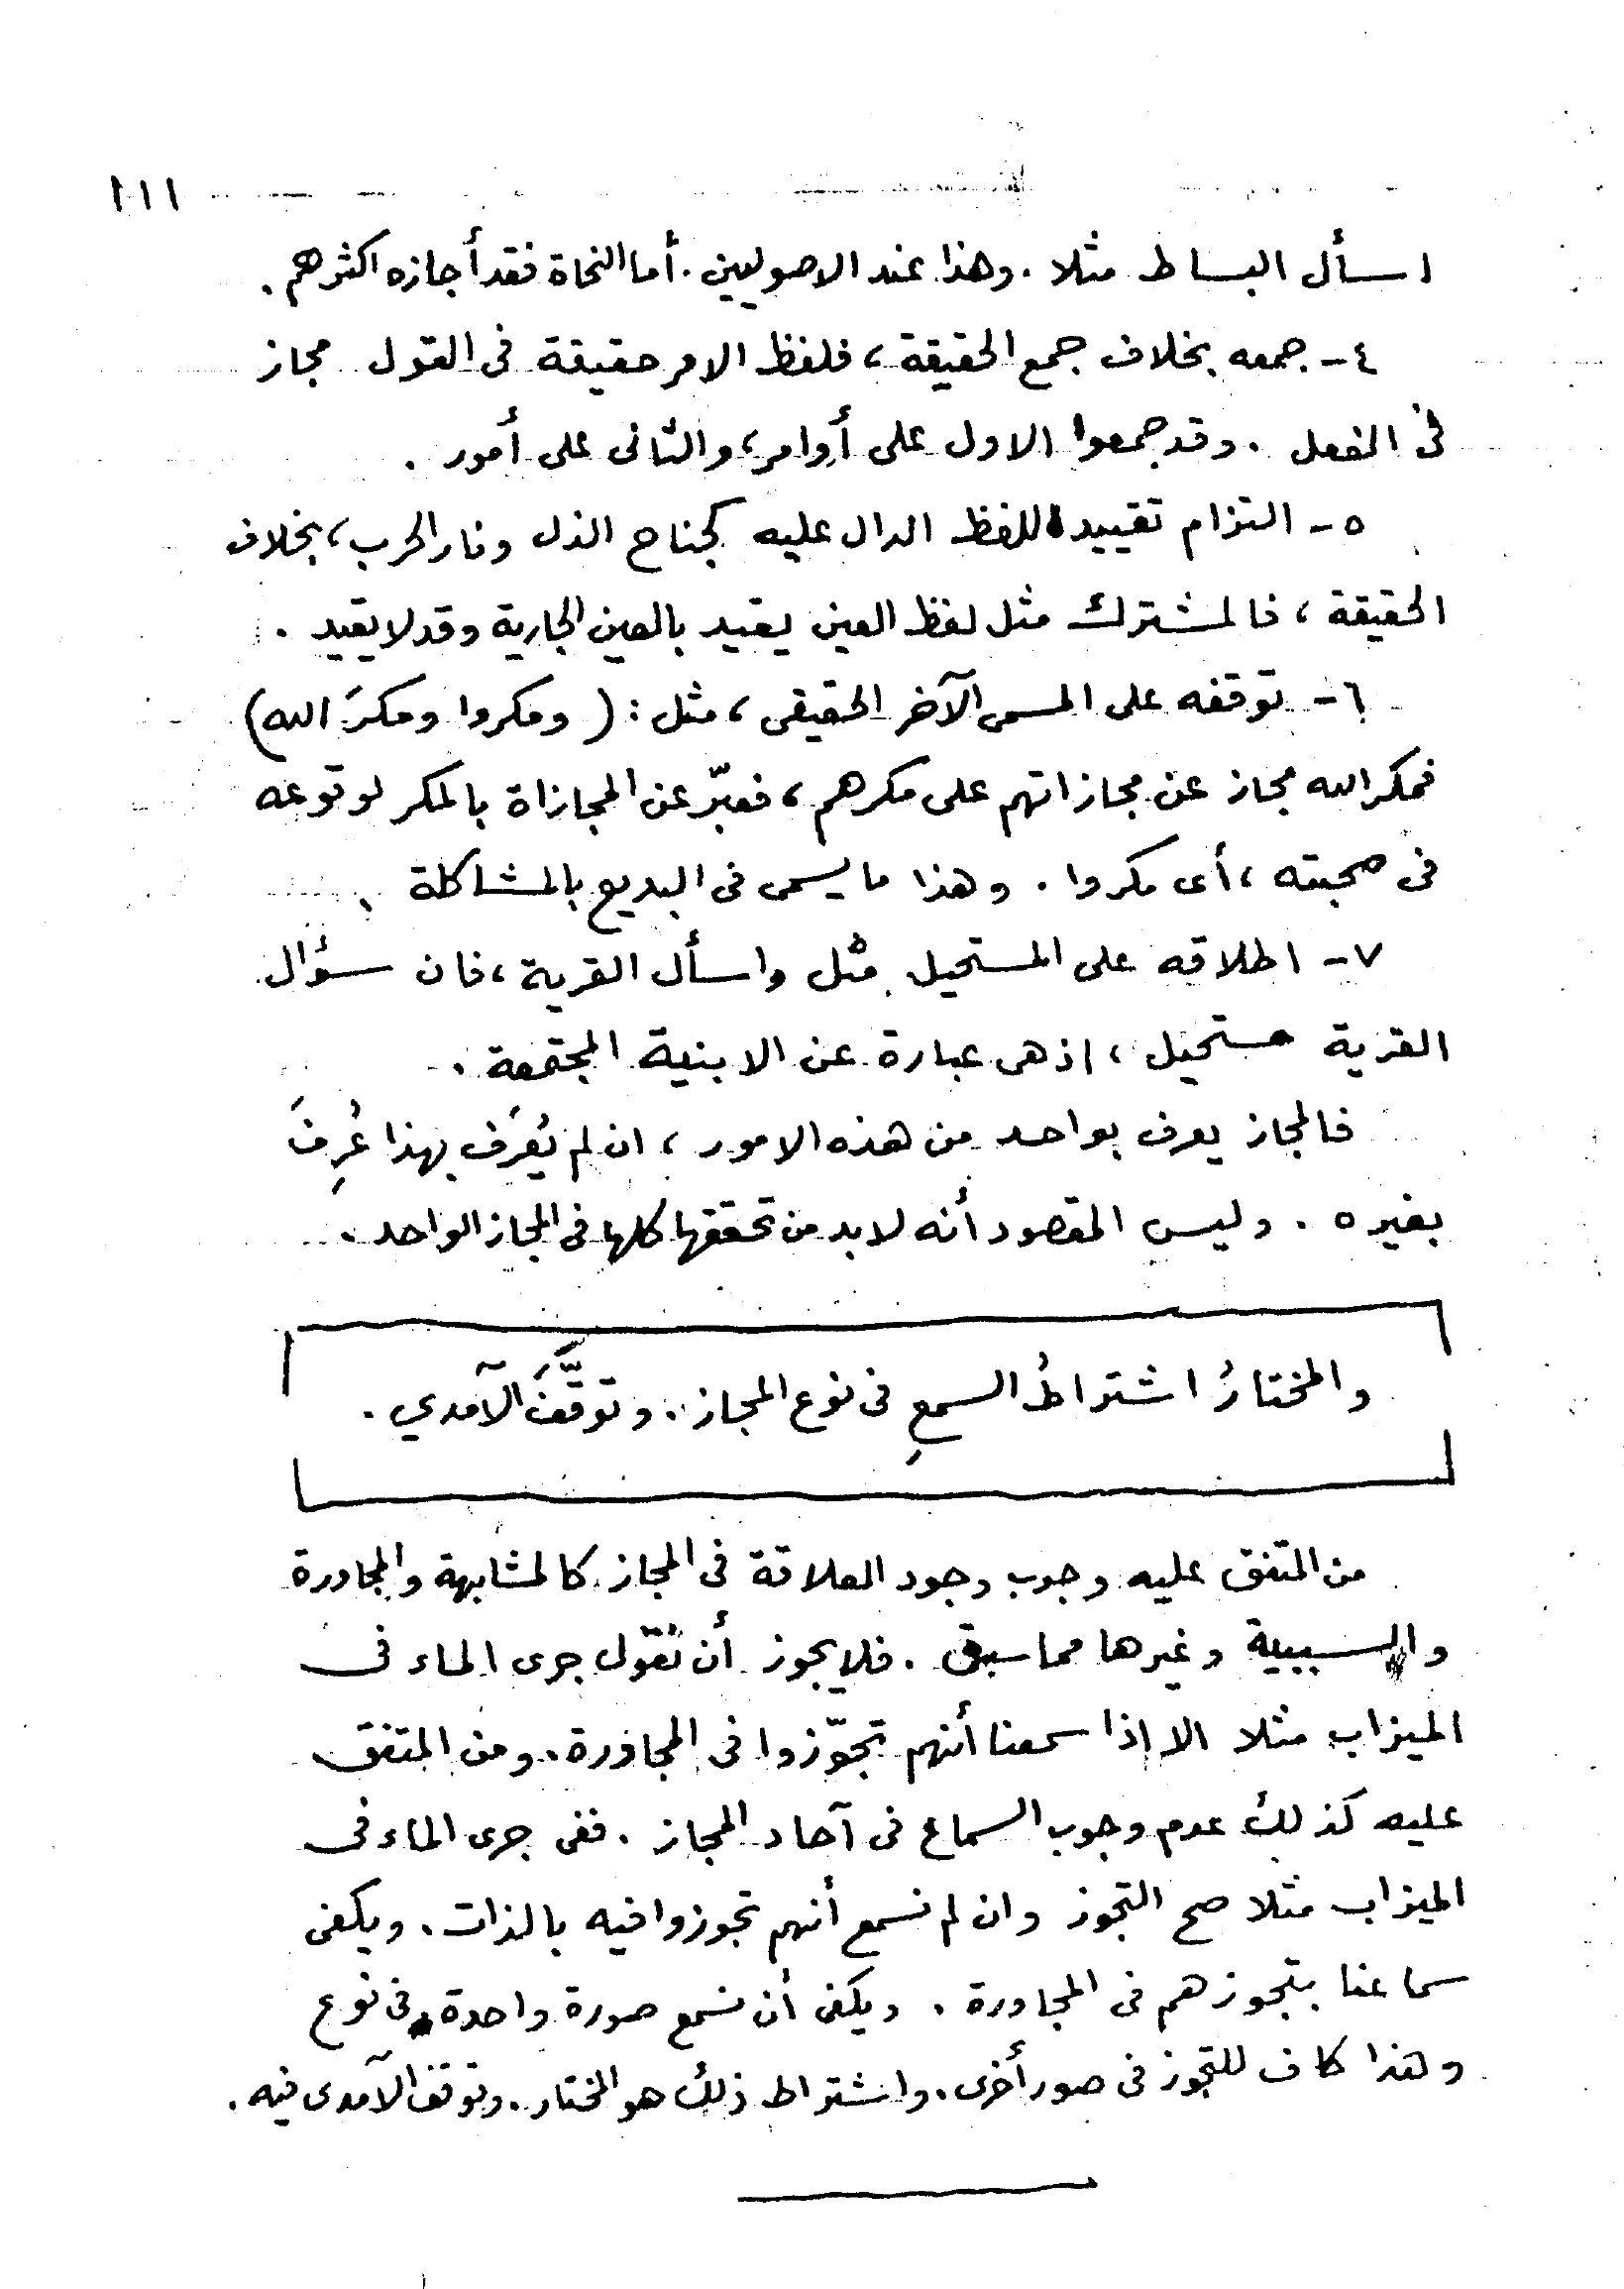 ١١١
اسأل البساط مثلا . وهذا عند الاصوليين . أما النحاة فقد أجازه اكثرهم .
٤ - جمعه بخلاف جمع الحقيقة ، فلفظ الامر حقيقة فى القول مجاز
فى الفعل . وقد جمعوا الاول على أوامر ، والثانى على أمور .
٥ - التزام تقييد اللفظ الدال عليه كجناح الذل ونار الحرب ، بخلاف
الحقيقة ، فالمشترك مثل لفظ العين يقيد بالعين الجارية وقد لا يقيد .
٦ - توقفه على المسمى الآخر الحقيقى ، مثل : ( ومكروا ومكرَ الله )
فمكر الله مجاز عن مجازاتهم على مكرهم ، فعبّر عن المجازاة بالمكر لوقوعه
فى صحبته ، أى مكروا . وهذا ما يسمى فى البديع بالمشاكلة .
٧ - اطلاقه على المستحيل مثل واسأل القرية ، فان سؤال
القرية مستحيل ، اذ هى عبارة عن الابنية المجتمعة .
فالمجاز يعرف بواحد من هذه الامور ، ان لم يُعرَف بهذا عُرِفَ
بغيره . وليس المقصود أنه لا بد من تحققها كلها فى المجاز الواحد .
والمختارُ اشتراطُ السمعِ فى نوع المجاز . وتوقَّفَ الآمدي .
من المتفق عليه وجوب وجود العلاقة فى المجاز كالمشابهة والمجاورة
والسببية وغيرها مما سبق . فلا يجوز أن نقول جرى الماء فى
الميزاب مثلا الا اذا سمعنا أنهم تجوّزوا فى المجاورة . ومن المتفق
عليه كذلك عدم وجوب السماع فى آحاد المجاز . ففى جرى الماء فى
الميزاب مثلا صح التجوز وان لم نسمع أنهم تجوزوا فيه بالذات . ويكفى
سماعنا بتجوزهم فى المجاورة . ويكفى أن نسمع صورة واحدة فى نوع
وهذا كاف للتجوز فى صور أخرى . واشتراط ذلك هو المختار . وتوقف الآمدى فيه .